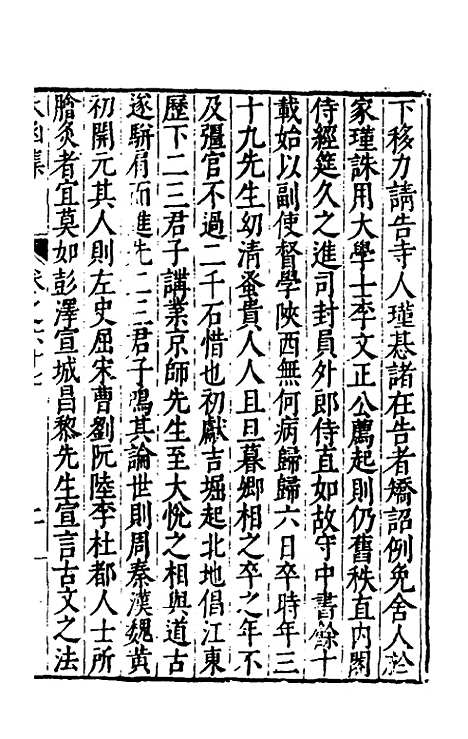 下移力請告寺人瑾惎諸在告者矯詔例免舍人於
家瑾誅用大學士李文正公薦起則仍舊秩直內閣
侍經筵久之進司封員外郎侍直如故守中書餘十
載始以副使督學陝西無何病歸歸六日卒時年三
十九先生幼清蚤貴人人且旦暮鄉相之卒之年不
及彊官不過二千石惜也初獻吉堀起北地倡江東
歷下二三君子講業京師先生至大悅之相與道古
遂駢肩而進先二三君子鴈其論世則周秦漢魏黃
初開元其人則左史屈宋曹劉阮陸李杜都人士所
膾炙者宜莫如彭澤宣城昌黎先生宣言古文之法
太函集
卷之六十七
二